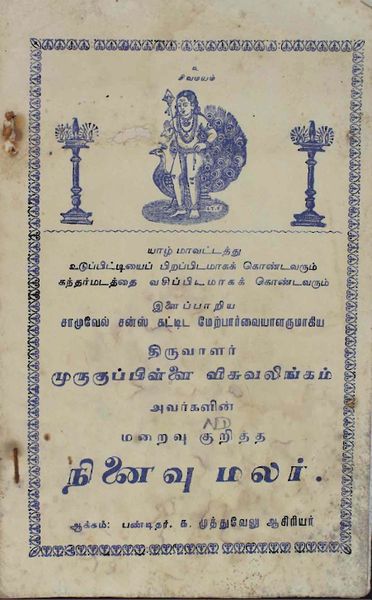 உ
சிவமயம்
யாழ் மாவட்டத்து
உடுப்பிட்டியைப் பிறப்பிடமாகக் கொண்டவரும்
கந்தர்மடத்தை வசிப்பிடமாகக் கொண்டவரும்
இளைப்பாறிய
சாமுவேல் சன்ஸ் கட்டிட மேற்பார்வையாளருமாகிய
திருவாளர்
முருகுப்பிள்ளை விசுவலிங்கம்
அவர்களின்
மறைவு குறித்த
நினைவு மலர்.
ஆக்கம்: பண்டிதர். க. முத்துவேலு ஆசிரியர்